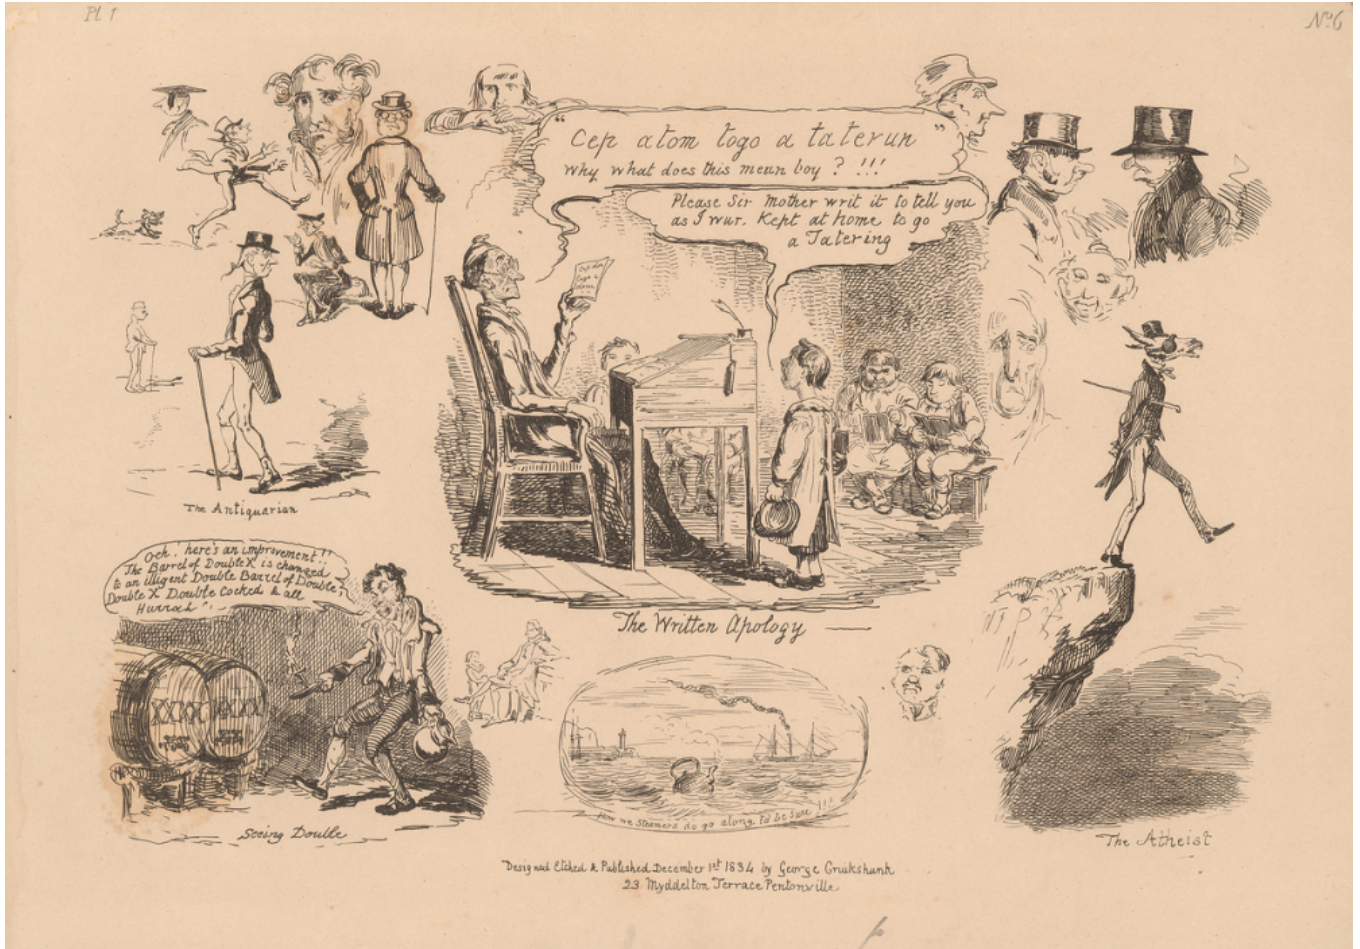 Pl 1
No. 6
"Cep atom togo a taterun"
why what does this mean boy ? !!!
Please Sir Mother writ it to tell you
as I wur. Kept at home to go
a Tatering
Cep atom
togo a
taterun
The Antiquarian
Och! here's an improvement!!
The Barrel of Double X is changed
to an illigent Double Barrel of Double,
Double X Double Cocked & all
Hurrah!
XXXX XXXX
Seeing Double
The Written Apology
How we Steamers do go along, to be sure!!!
The Atheist
Designed Etched & Published December 1st 1834 by George Cruikshank
23 Myddelton Terrace Pentonville